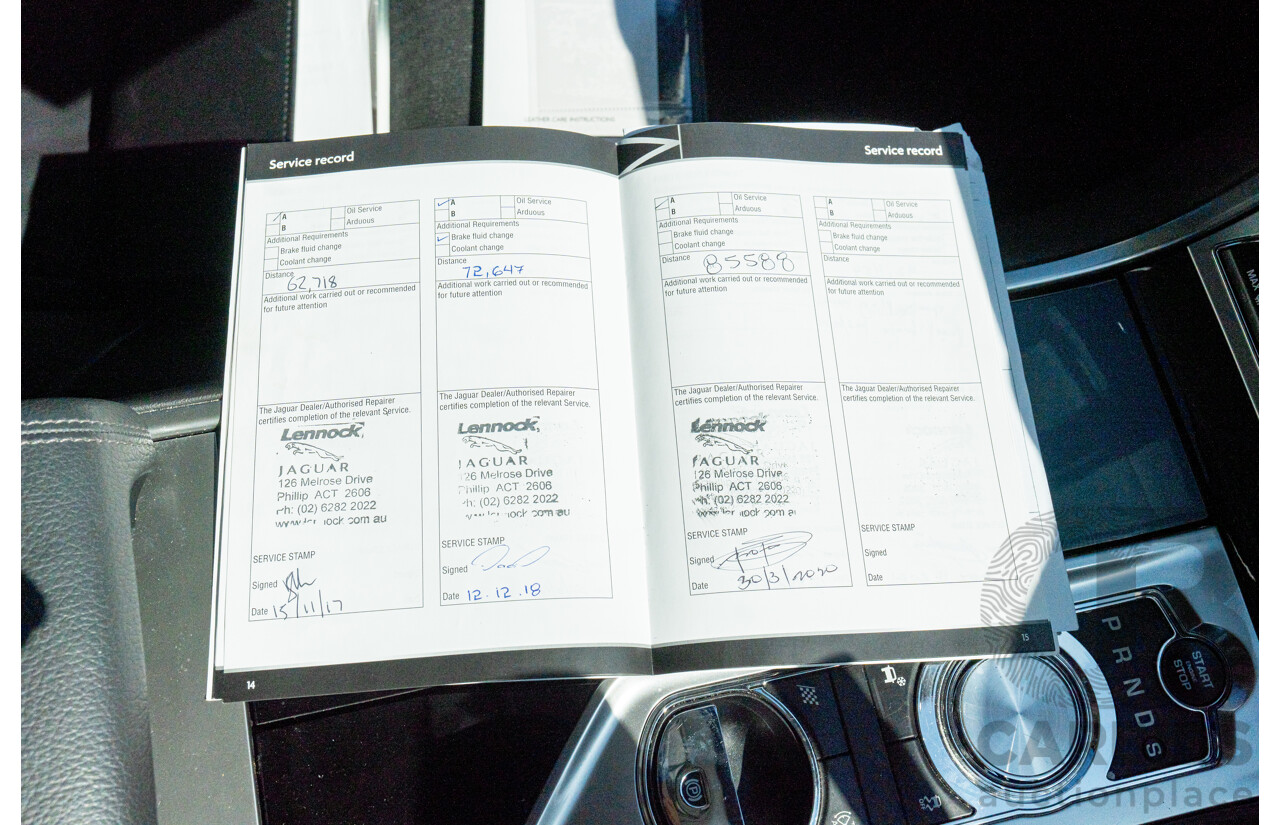 LEATHER CARE INSTRUCTIONS
Service record
A
B
Oil Service
Arduous
Additional Requirements
Brake fluid change
Coolant change
Distance
62,718
Additional work carried out or recommended
for future attention
The Jaguar Dealer/Authorised Repairer
certifies completion of the relevant Service.
Lennock
JAGUAR
126 Melrose Drive
Phillip ACT 2606
Ph: (02) 6282 2022
SERVICE STAMP
Signed
Date 15/11/17
A
B
Oil Service
Arduous
Additional Requirements
Brake fluid change
Coolant change
Distance
72,647
Additional work carried out or recommended
for future attention
The Jaguar Dealer/Authorised Repairer
certifies completion of the relevant Service.
Lennock
JAGUAR
126 Melrose Drive
Phillip ACT 2606
Ph: (02) 6282 2022
SERVICE STAMP
Signed
Date 12.12.18
14
Service record
A
B
Oil Service
Arduous
Additional Requirements
Brake fluid change
Coolant change
Distance 85588
Additional work carried out or recommended
for future attention
The Jaguar Dealer/Authorised Repairer
certifies completion of the relevant Service.
Lennock
JAGUAR
126 Melrose Drive
Phillip ACT 2606
Ph: (02) 6282 2022
SERVICE STAMP
Signed
Date 30/3/2020
A
B
Oil Service
Arduous
Additional Requirements
Brake fluid change
Coolant change
Distance
Additional work carried out or recommended
for future attention
The Jaguar Dealer/Authorised Repairer
certifies completion of the relevant Service.
SERVICE STAMP
Signed
Date
15
MAX
P
R
N
D
S
START
ENGINE
STOP
(P)
auctionplace